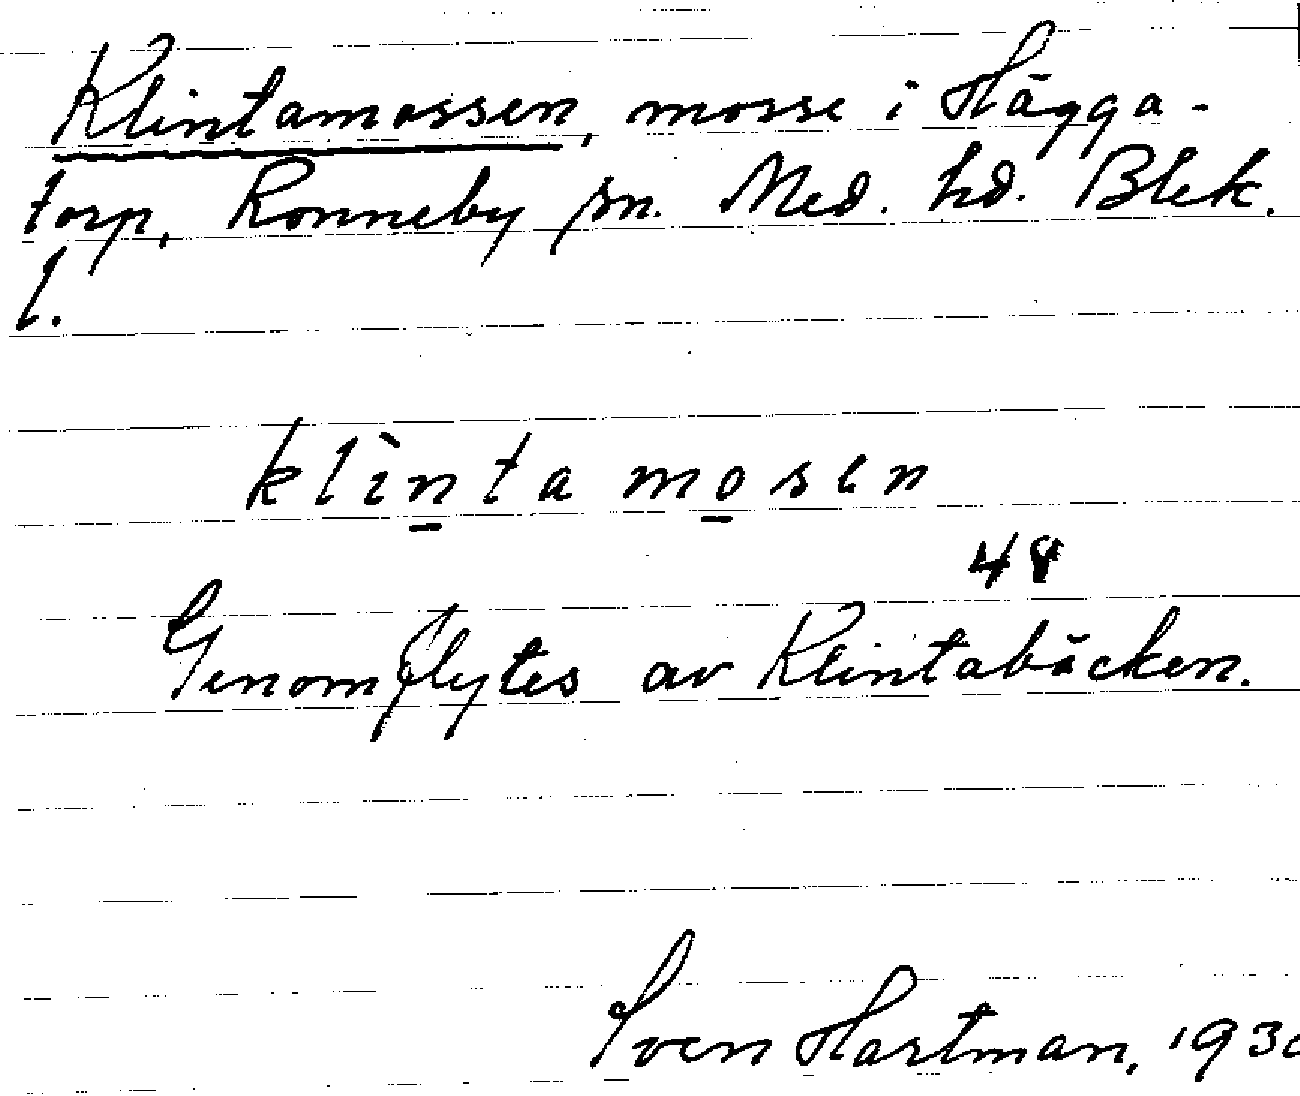 Klintamossen, mosse i Hägga-
torp, Ronneby sn. Med. hd. Blek.
l.
klìnta mosen
48
Genomflytes av Klintabäcken.
Sven Hartman, 193